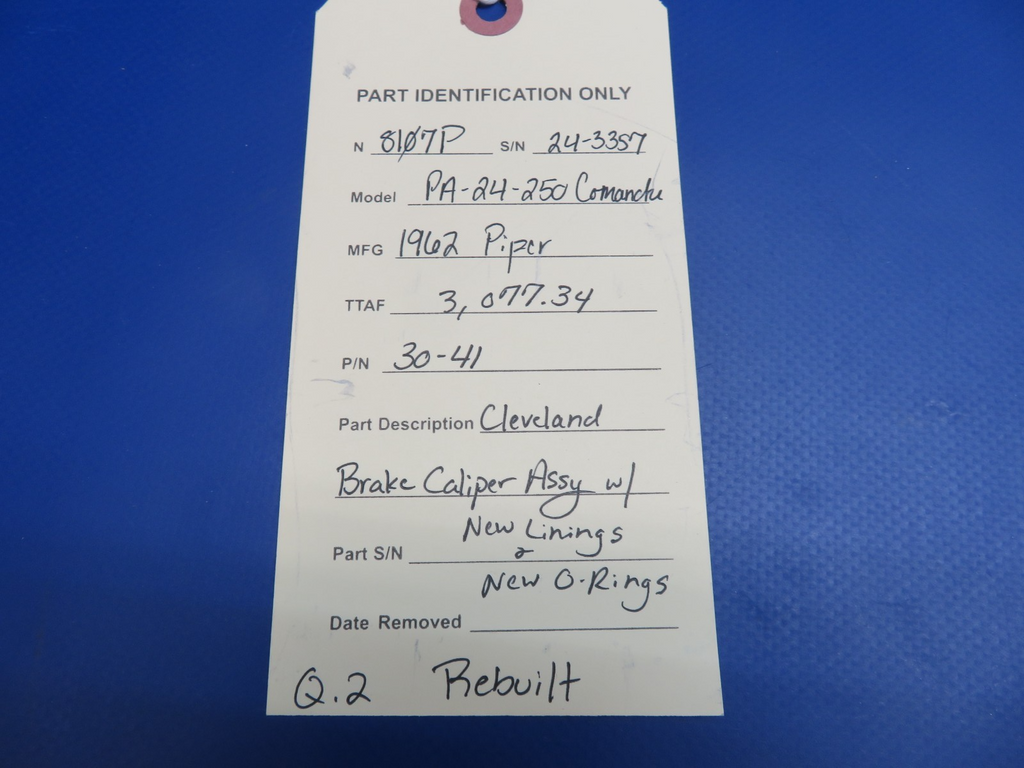 PART IDENTIFICATION ONLY
N 8107P S/N 24-3357
Model PA-24-250 Comanche
MFG 1962 Piper
TTAF 3,077.34
P/N 30-41
Part Description Cleveland
Brake Caliper Assy w/
New Linings
Part S/N &
New O-Rings
Date Removed
Q.2 Rebuilt